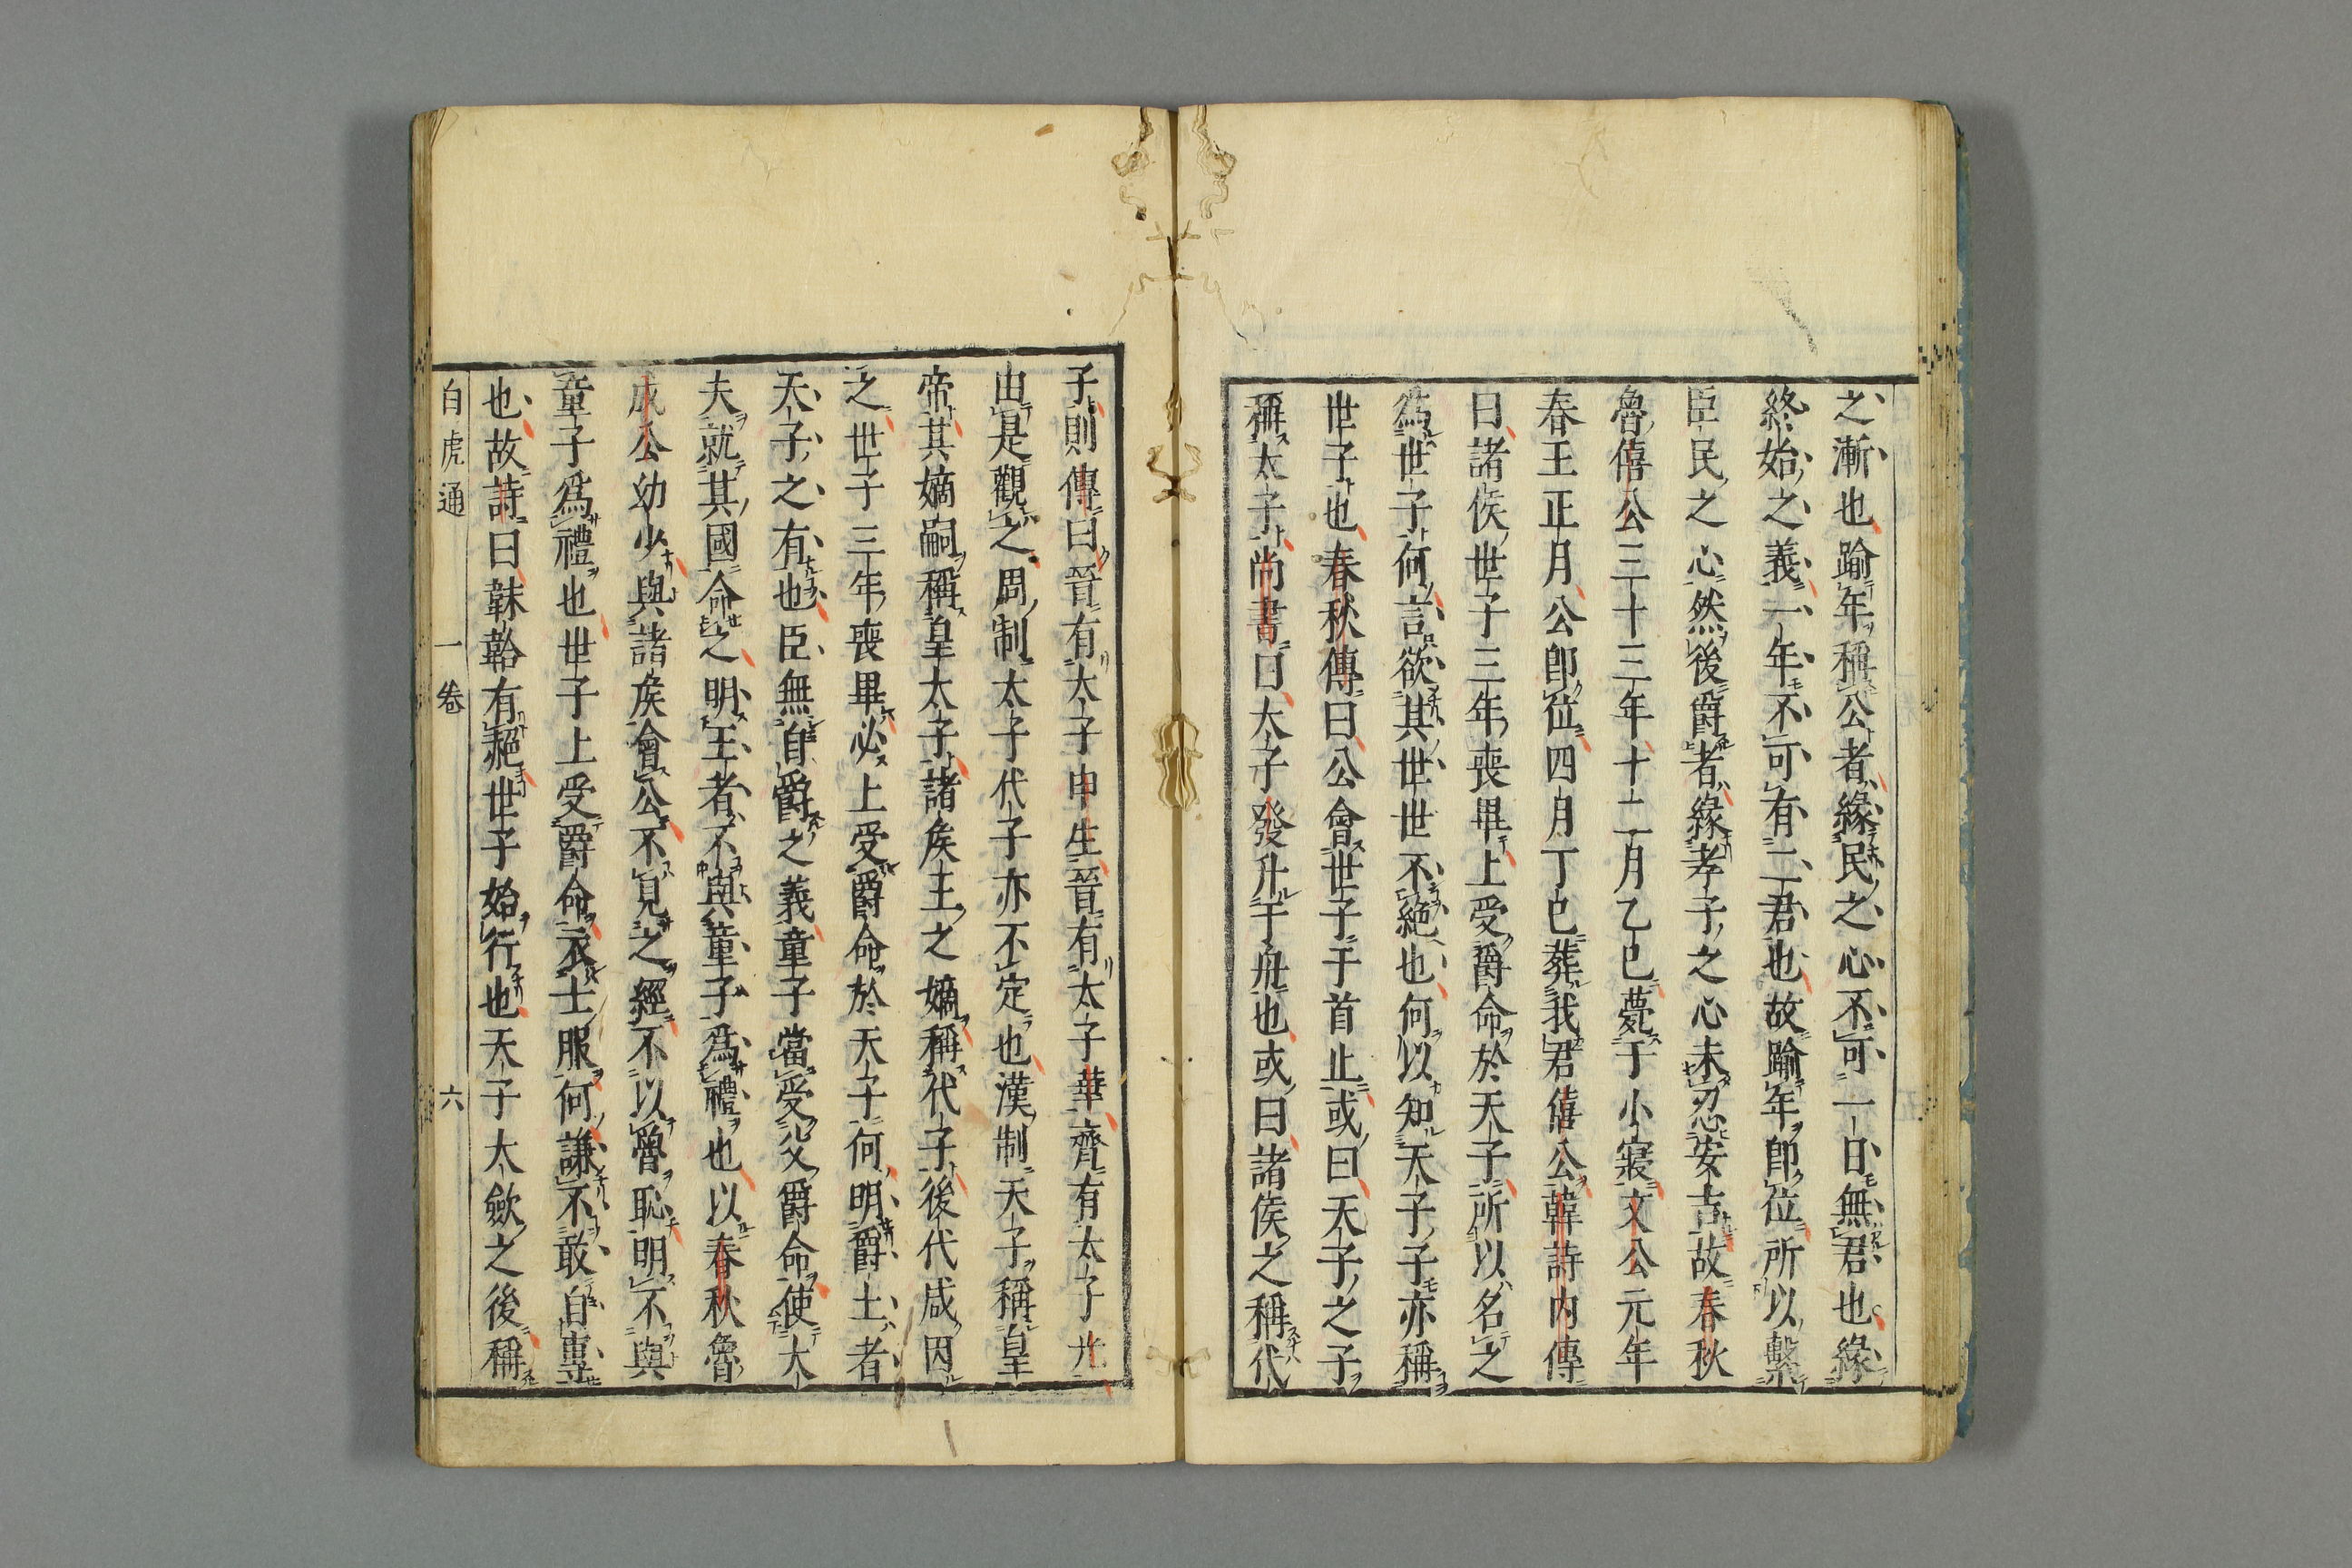 之漸也踰年稱公者緣民之心不可一日無君也緣
終始之義一年不可有二君也故踰年卽位所以繫
臣民之心然後爵者緣孝子之心未忍安吉故春秋
魯僖公三十三年十二月乙巳薨于小寢文公元年
春王正月公卽位四月丁巳葬我君僖公韓詩內傳
曰諸侯世子三年喪畢上受爵命於天子所以名之
爲世子何言欲其世世不絕也何以知天子子亦稱
世子也春秋傳曰公會世子于首止或曰天子之子
稱太子尚書曰太子發升于舟也或曰諸侯之稱代
子則傳曰晉有太子申生晉有太子華齊有太子光
由是觀之周制太子代子亦不定也漢制天子稱皇
帝其嫡嗣稱皇太子諸侯王之嫡稱代子後代咸因
之世子三年喪畢必上受爵命於天子何明爵土者
天子之有也臣無自爵之義童子當受父爵命使大
夫就其國命之明王者不與童子爲禮也以春秋魯
成公幼少與諸侯會公不見之經不以魯恥明不與
童子爲禮也世子上受爵命衣士服何謙不敢自專
也故詩曰韎韐有赩世子始行也天子大斂之後稱
白虎通 一卷 六